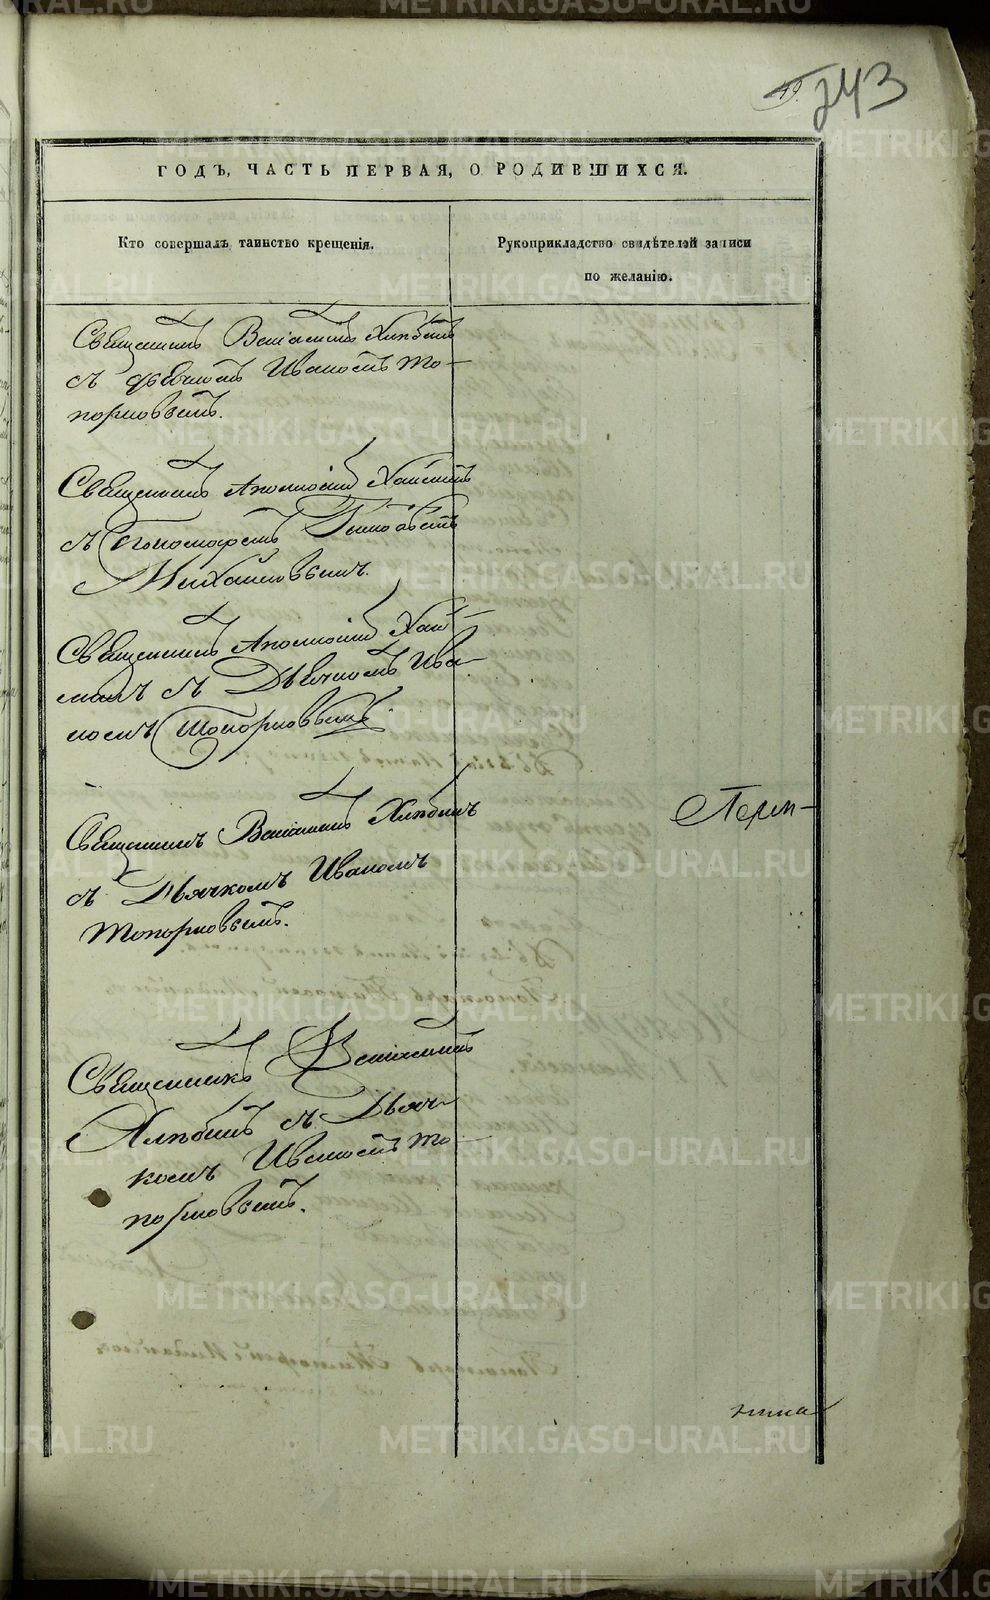 243
ГОДЪ, ЧАСТЬ ПЕРВАЯ, О РОДИВШИХСЯ.
Кто совершалъ таинство крещенія.
Рукоприкладство свидѣтелей записи
по желанію.
Священникъ Веніаминъ Хлѣбинъ
съ дьячкомъ Иваномъ То-
порковымъ.
Священникъ Аполлосій
съ Пономаремъ Тимофѣемъ
Михайловымъ.
Священникъ Аполлосій
съ Дьячкомъ Ива-
номъ Топорковымъ
Священникъ Веніаминъ Хлѣбинъ
съ Дьячкомъ Иваномъ
Топорковымъ.
Священникъ Веніаминъ
Хлѣбинъ съ Дьяч-
комъ Иваномъ То-
порковымъ.
METRIKI.GASO-URAL.RU